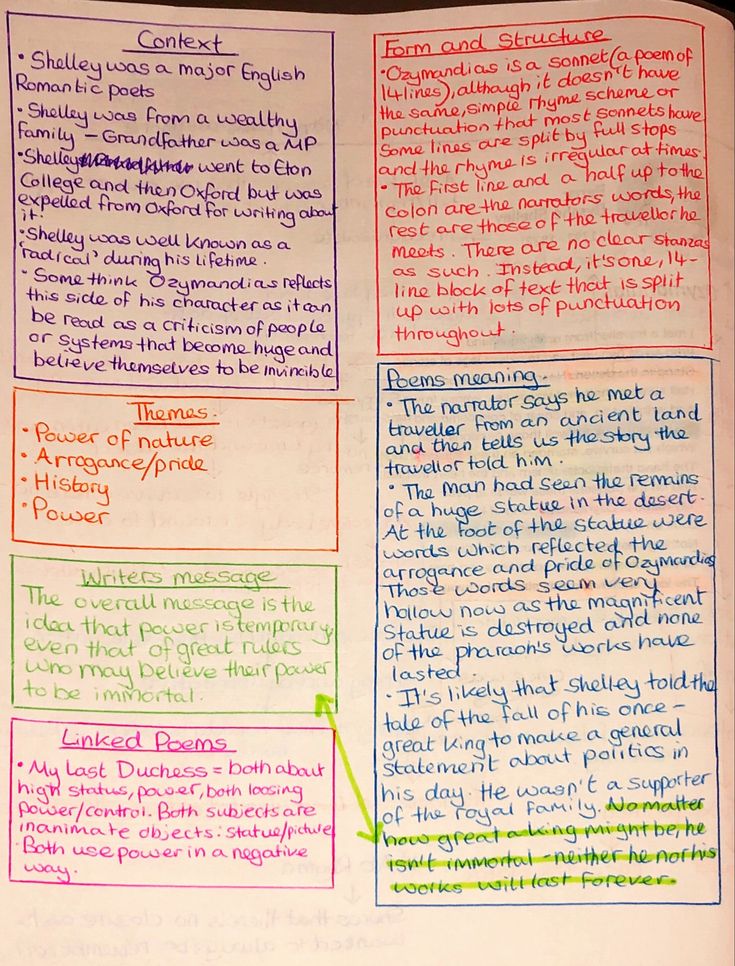 Context
• Shelley was a major English
Romantic poets
• Shelley was from a wealthy
family – Grandfather was a MP
• Shelley went to Eton
College and then Oxford but was
expelled from Oxford for writing about
it!
• Shelley was well known as a
'radical' during his lifetime.
• Some think Ozymandias reflects
this side of his character as it can
be read as a criticism of people
or systems that become huge and
believe themselves to be invincible
Themes.
• Power of nature
• Arrogance/pride
• History
• Power
Writers message
The overall message is the
idea that power is temporary,
even that of great rulers
who may believe their power
to be immortal.
Linked Poems
• My Last Duchess = both about
high status, power, both loosing
power/control. Both subjects are
inanimate objects: statue/picture
• Both use power in a negative
way.
Form and Structure
• Ozymandias is a sonnet (a poem of
14 lines), although it doesn't have
the same, simple rhyme scheme or
punctuation that most sonnets have
Some lines are split by full stops
and the rhyme is irregular at times.
• The first line and a half up to the
colon are the narrators words, the
rest are those of the travellor he
meets. There are no clear stanzas
as such. Instead, it's one, 14-
line block of text that is split
up with lots of punctuation
throughout.
Poems meaning.
• The narrator says he met a
traveller from an ancient land
and then tells us the story the
travellor told him.
• The man had seen the remains
of a huge statue in the desert.
At the foot of the statue were
words which reflected the
arrogance and pride of Ozymandias
Those words seem very
hollow now as the magnificent
statue is destroyed and none
of the pharaoh's works have
lasted
• It's likely that Shelley told the
tale of the fall of his once-
great king to make a general
statement about politics in
his day. He wasn't a supporter
of the royal family. No matter
how great a king might be, he
isn't immortal - neither he nor his
works will last forever.